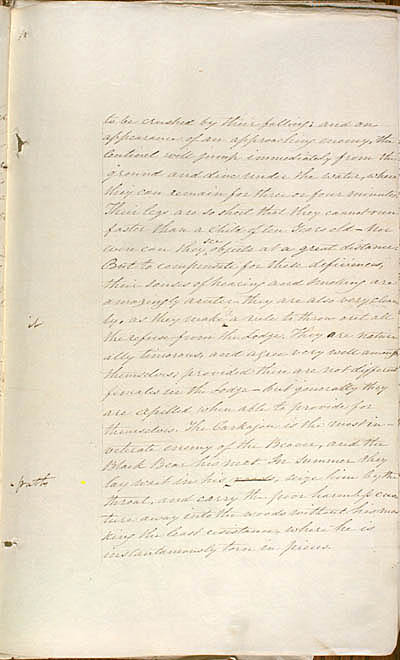 to be crushed by their falling: and on
appearance of an approaching enemy, the
Centinel will jump immediately from the
ground and dive under the water, where
they can remain for three or four minutes
Their legs are so short that they cannot run
faster than a Child of ten Years old - Nor
even can they see objects at a great distance
But to compensate for these deficiences,
their senses of hearing and smelling are
amazingly acute - they are also very clean
ly, as they make a rule to throw out all
it
the refuse from the Lodge. They are natur
ally timorous, and agree very well among
themselves; provided there are not different
females in the Lodge - but generally they
are expelled when able to provide for
themselves. The Carkajou is the most in-
veterate enemy of the Beaver, and the
Black Bear his next. In Summer they
path
lay wait in his seize him by the
throat, and carry the poor harmless crea
ture away into the woods without his ma
king the least resistance, where he is
instantaneously torn in pieces.